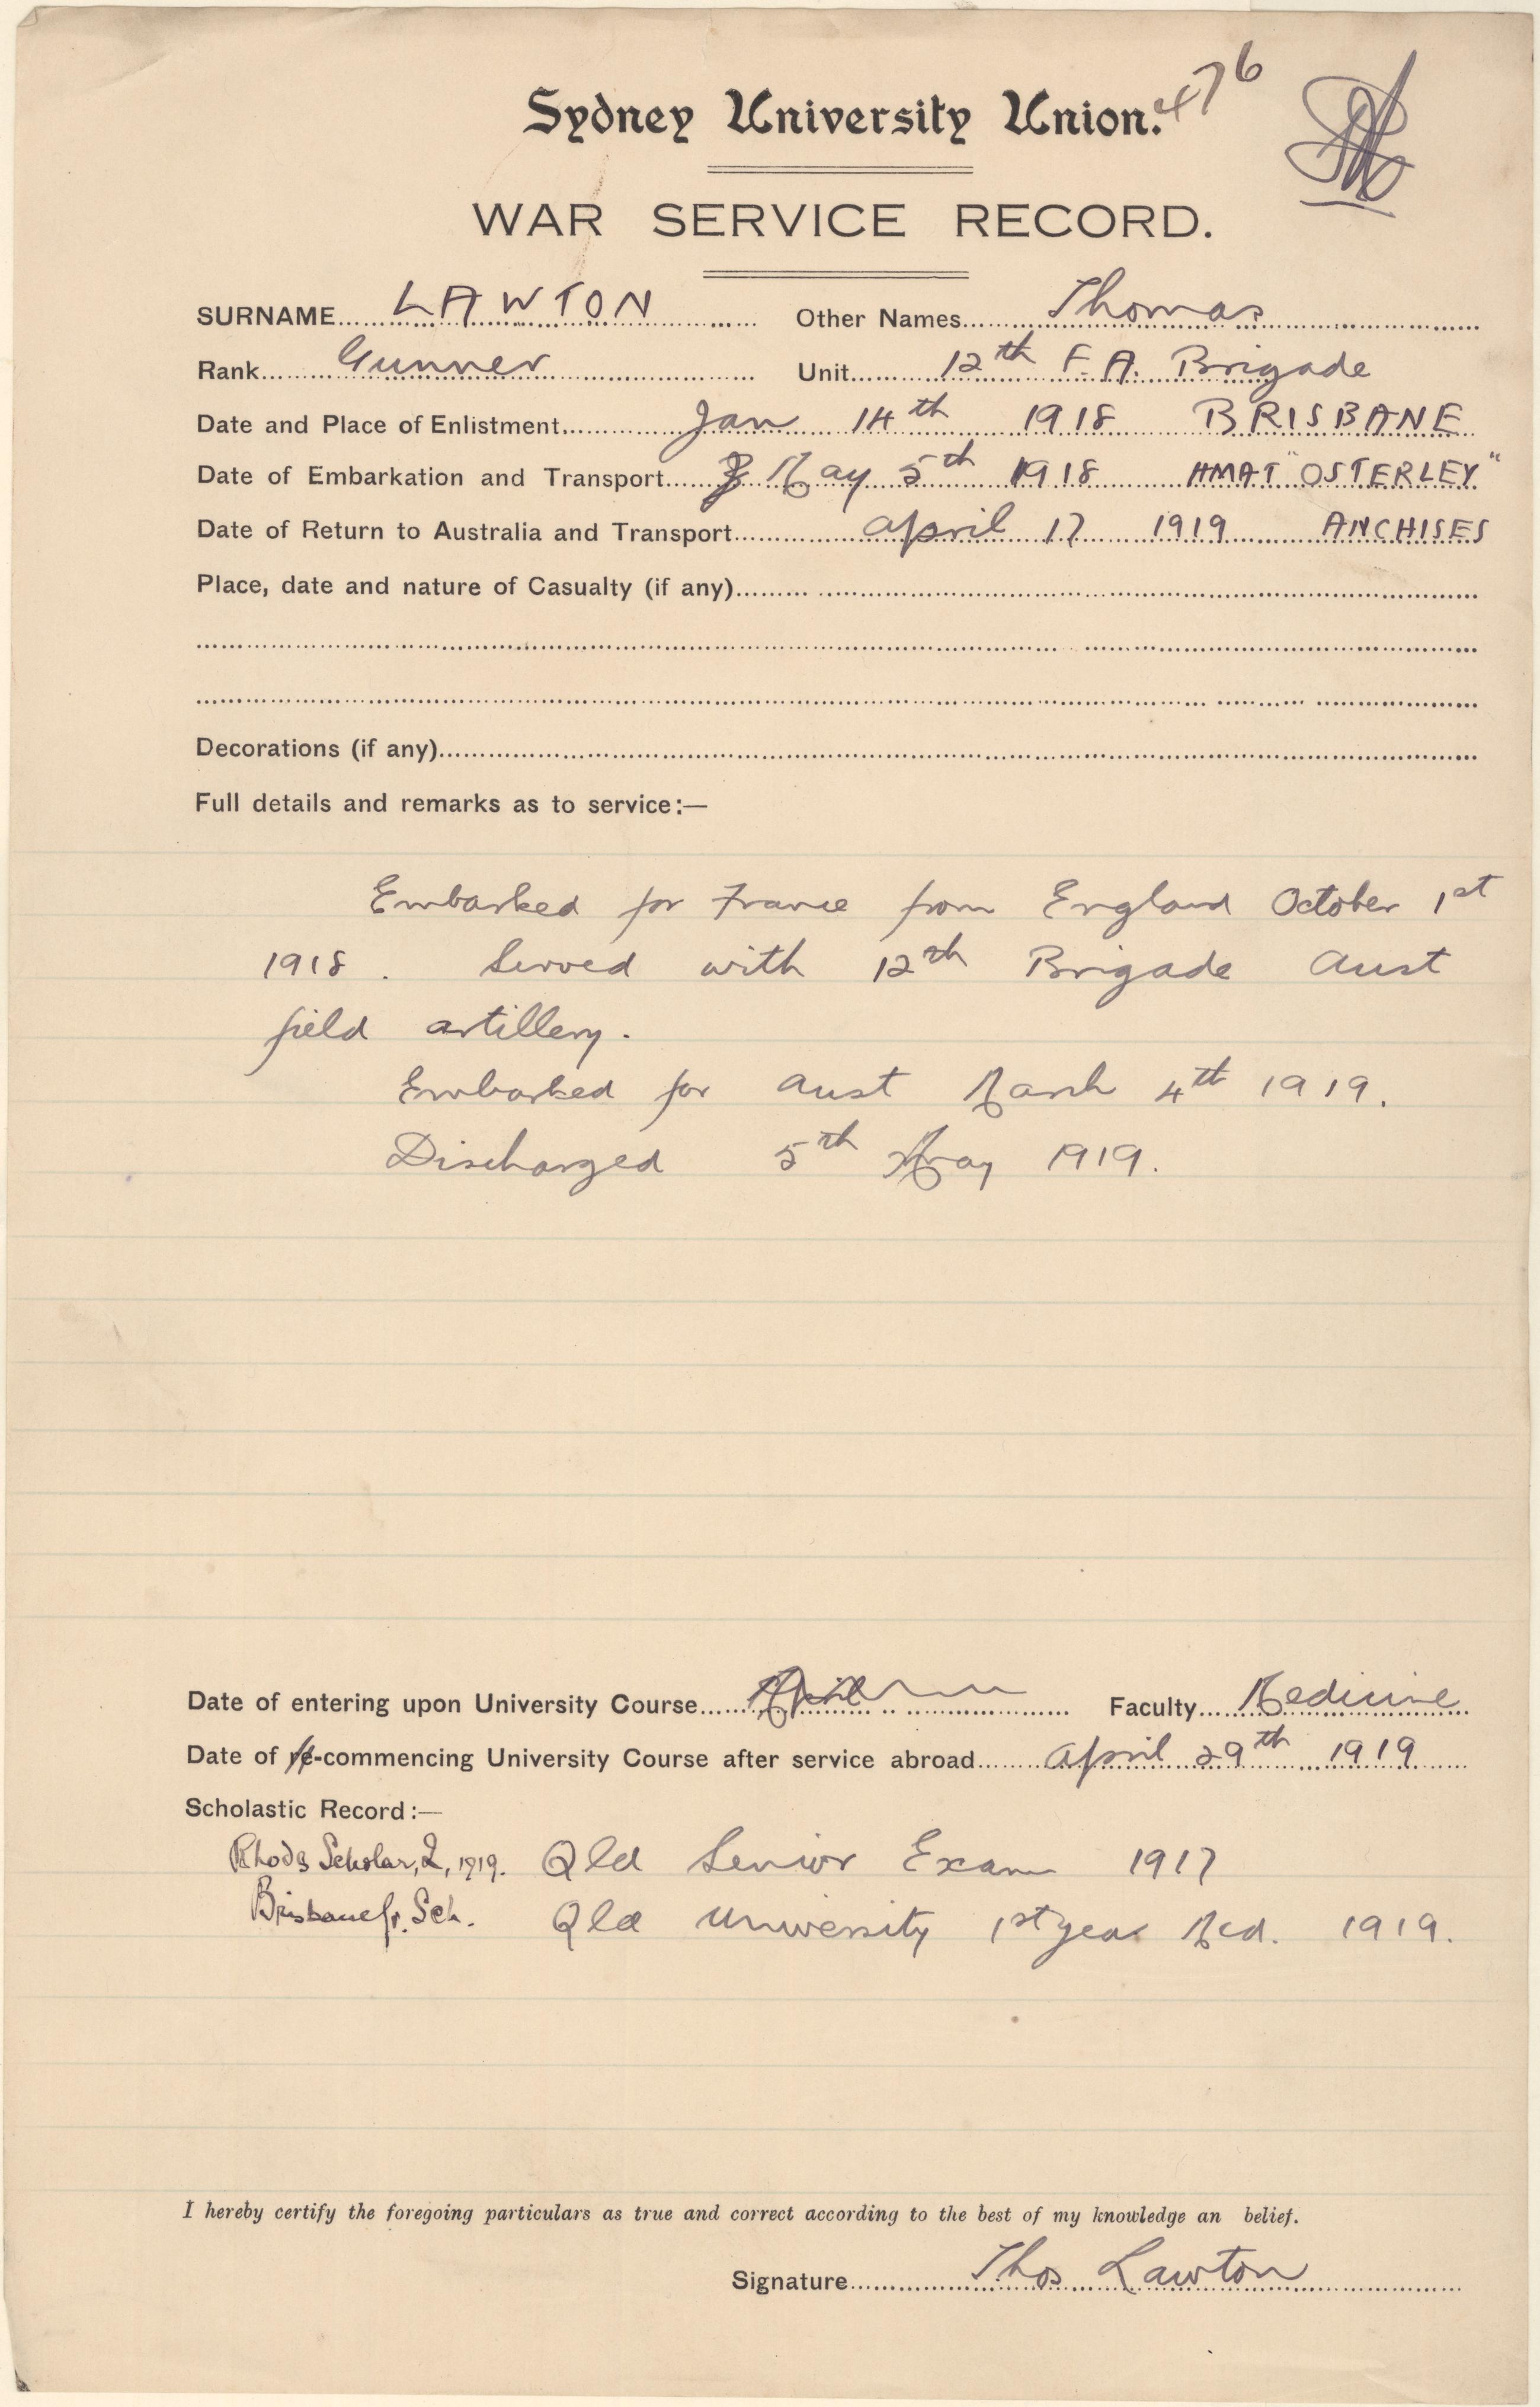 476
Sydney University Union.
WAR SERVICE RECORD.
SURNAME LAWTON Other Names Thomas
Rank Gunner Unit 12th F.A. Brigade
Date and Place of Enlistment Jan 14th 1918 BRISBANE
Date of Embarkation and Transport May 5th 1918 HMAT "OSTERLEY"
Date of Return to Australia and Transport April 17 1919 ANCHISES
Place, date and nature of Casualty (if any)
Decorations (if any)
Full details and remarks as to service:—
Embarked for France from England October 1st
1918. Served with 12th Brigade Aust
field artillery.
Embarked for Aust March 4th 1919.
Discharged 5th May 1919.
Date of entering upon University Course April Faculty Medicine
Date of re-commencing University Course after service abroad April 29th 1919
Scholastic Record:—
Rhodes Scholar, Q, 1919. Qld Senior Exam 1917
Brisbane Gr. Sch. Qld University 1st year Med. 1919.
I hereby certify the foregoing particulars as true and correct according to the best of my knowledge an belief.
Signature Thos Lawton